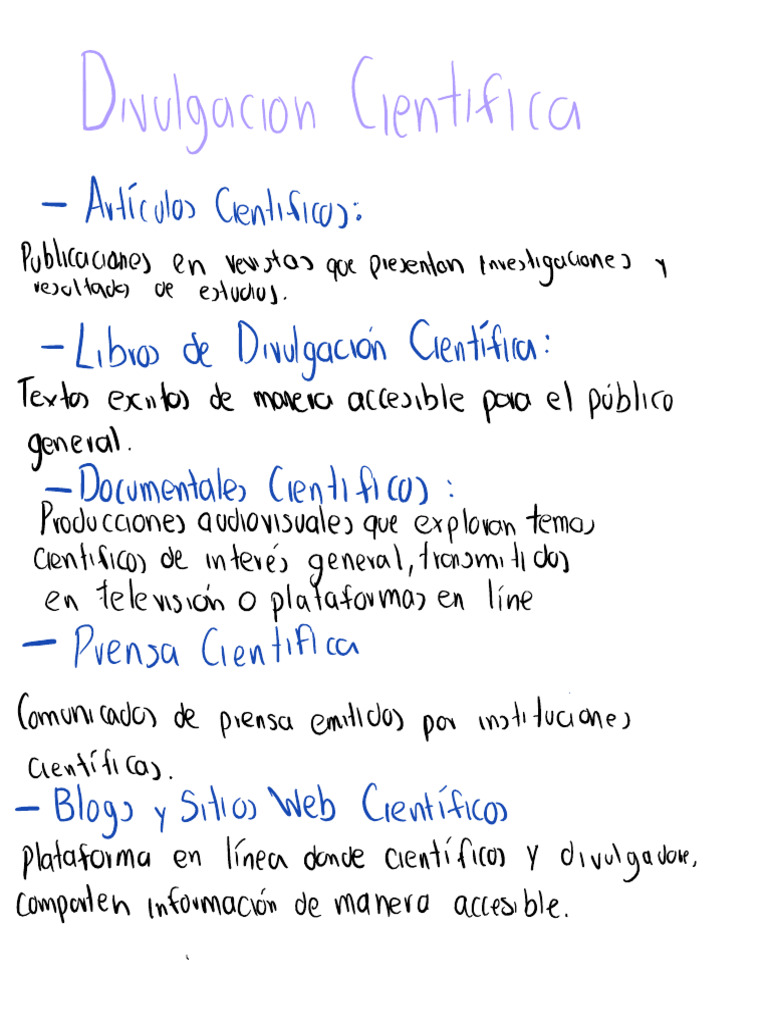 Divulgacion Cientifica
- Artículos Cientificos:
Publicaciones en revistas que presentan investigaciones y
resultados de estudios.
- Libros de Divulgación Científica:
Textos escritos de manera accesible para el público
general.
- Documentales Cientificos:
Producciones audiovisuales que exploran temas
cientificos de interés general, transmitidos
en televisión o plataformas en líne
- Prensa Cientifica
Comunicados de prensa emitidos por instituciones
científicas.
- Blogs y Sitios Web Científicos
Plataforma en línea donde científicos y divulgadores
comparten información de manera accesible.